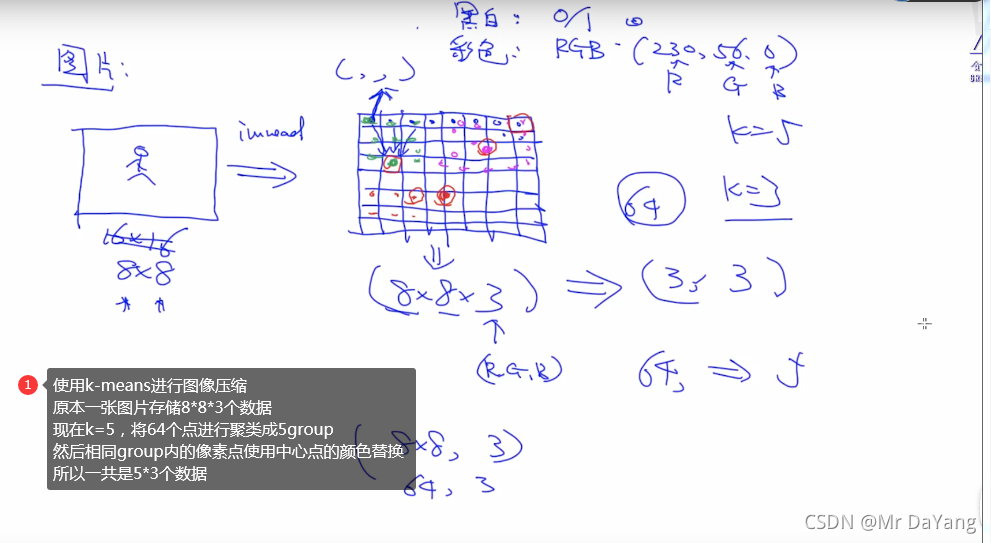 黑白: 0/1
彩色: RGB - (230, 56, 0)
R G B
图片:
( , , )
k=5
imread
64
k=3
16×16
8×8
(8×8×3) ⇒ (3, 3)
(R,G,B)
64, ⇒ 5
1
使用k-means进行图像压缩
原本一张图片存储8*8*3个数据
现在k=5，将64个点进行聚类成5group
然后相同group内的像素点使用中心点的颜色替换
所以一共是5*3个数据
(8×8, 3)
64, 3
CSDN @Mr DaYang